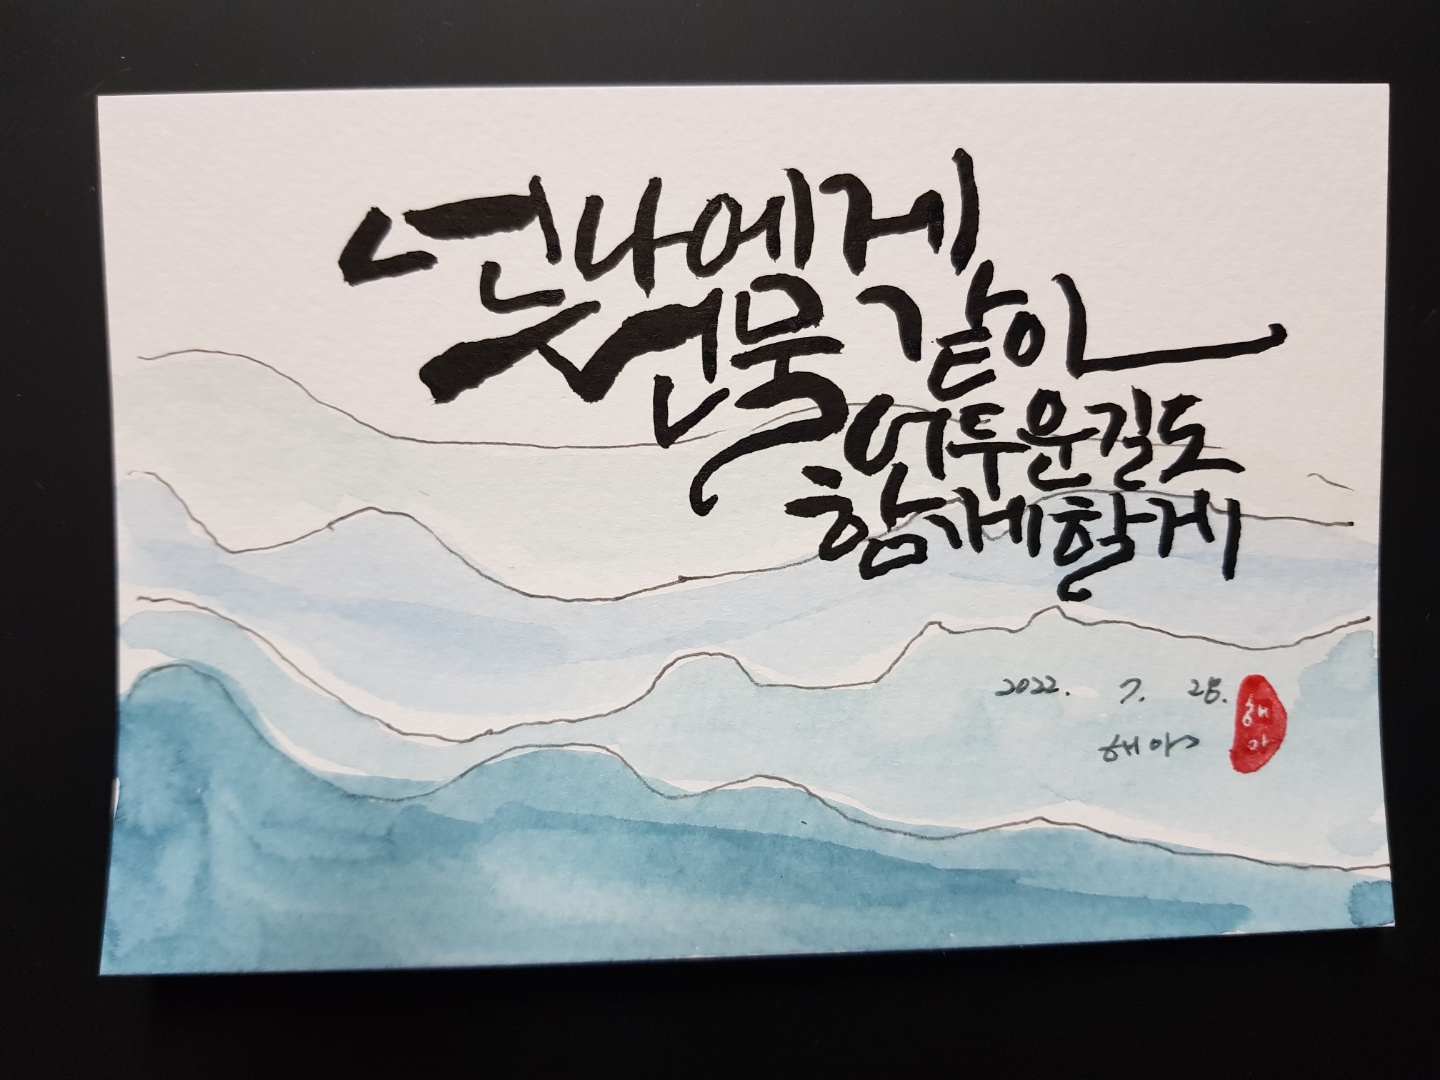 넌 나에게
선물 같아
어두운 길도
함께 할게
2022. 7. 28.